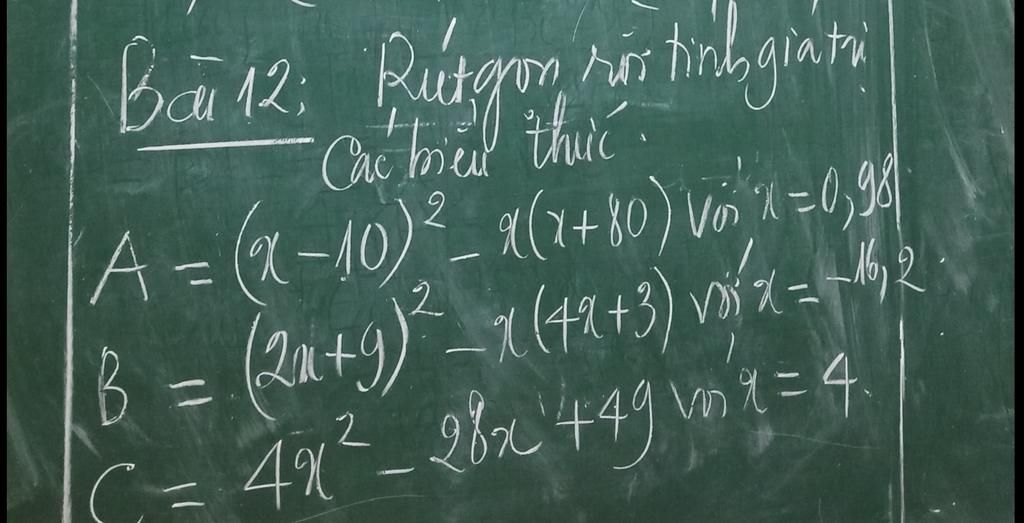 Bài 12: Rút gọn rồi tính giá trị
các biểu thức.
A = (x - 10)² - x(x + 80) với x = 0,98
B = (2x + 9)² - x(4x + 3) với x = -16,2
C = 4x² - 28x + 49 với x = 4.